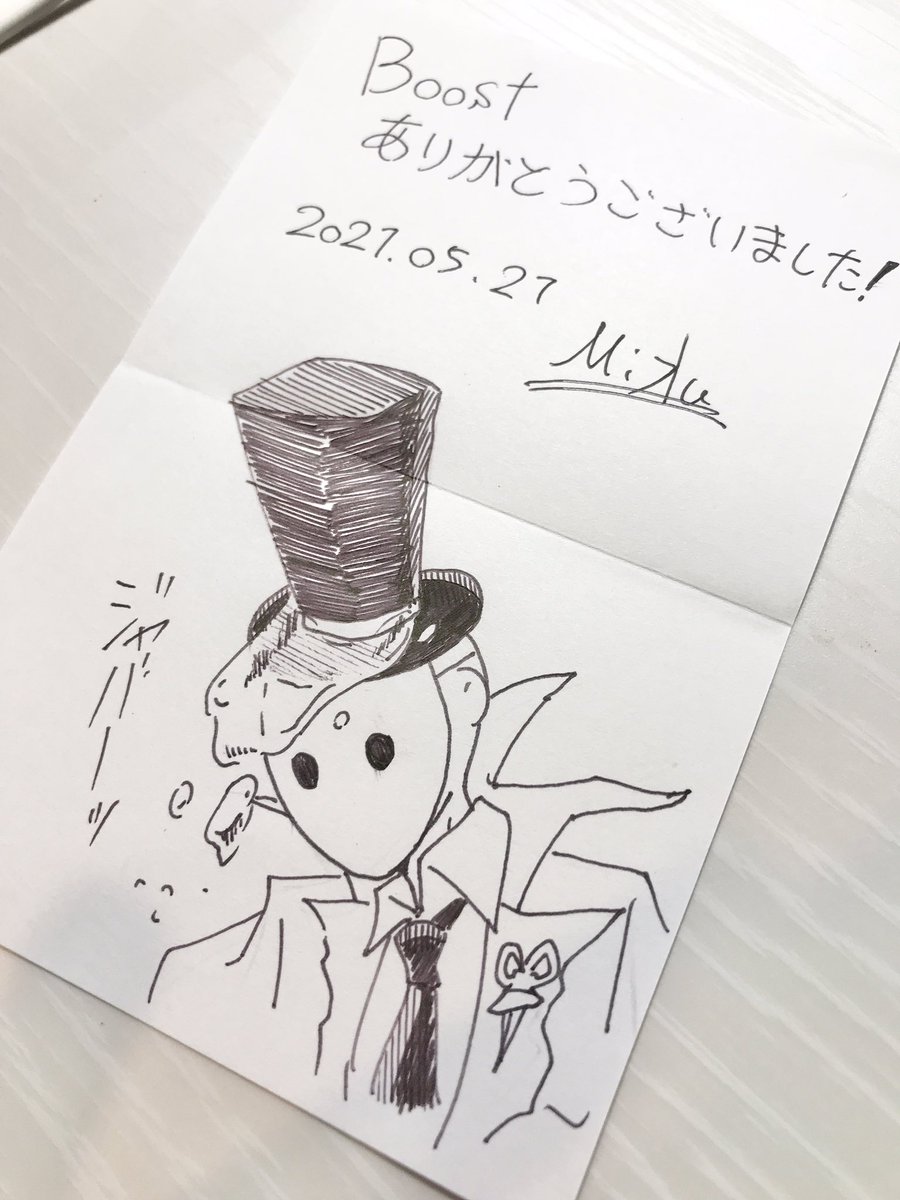 Boost
ありがとうございました!
2021.05.27
Miku
ジャバーッ